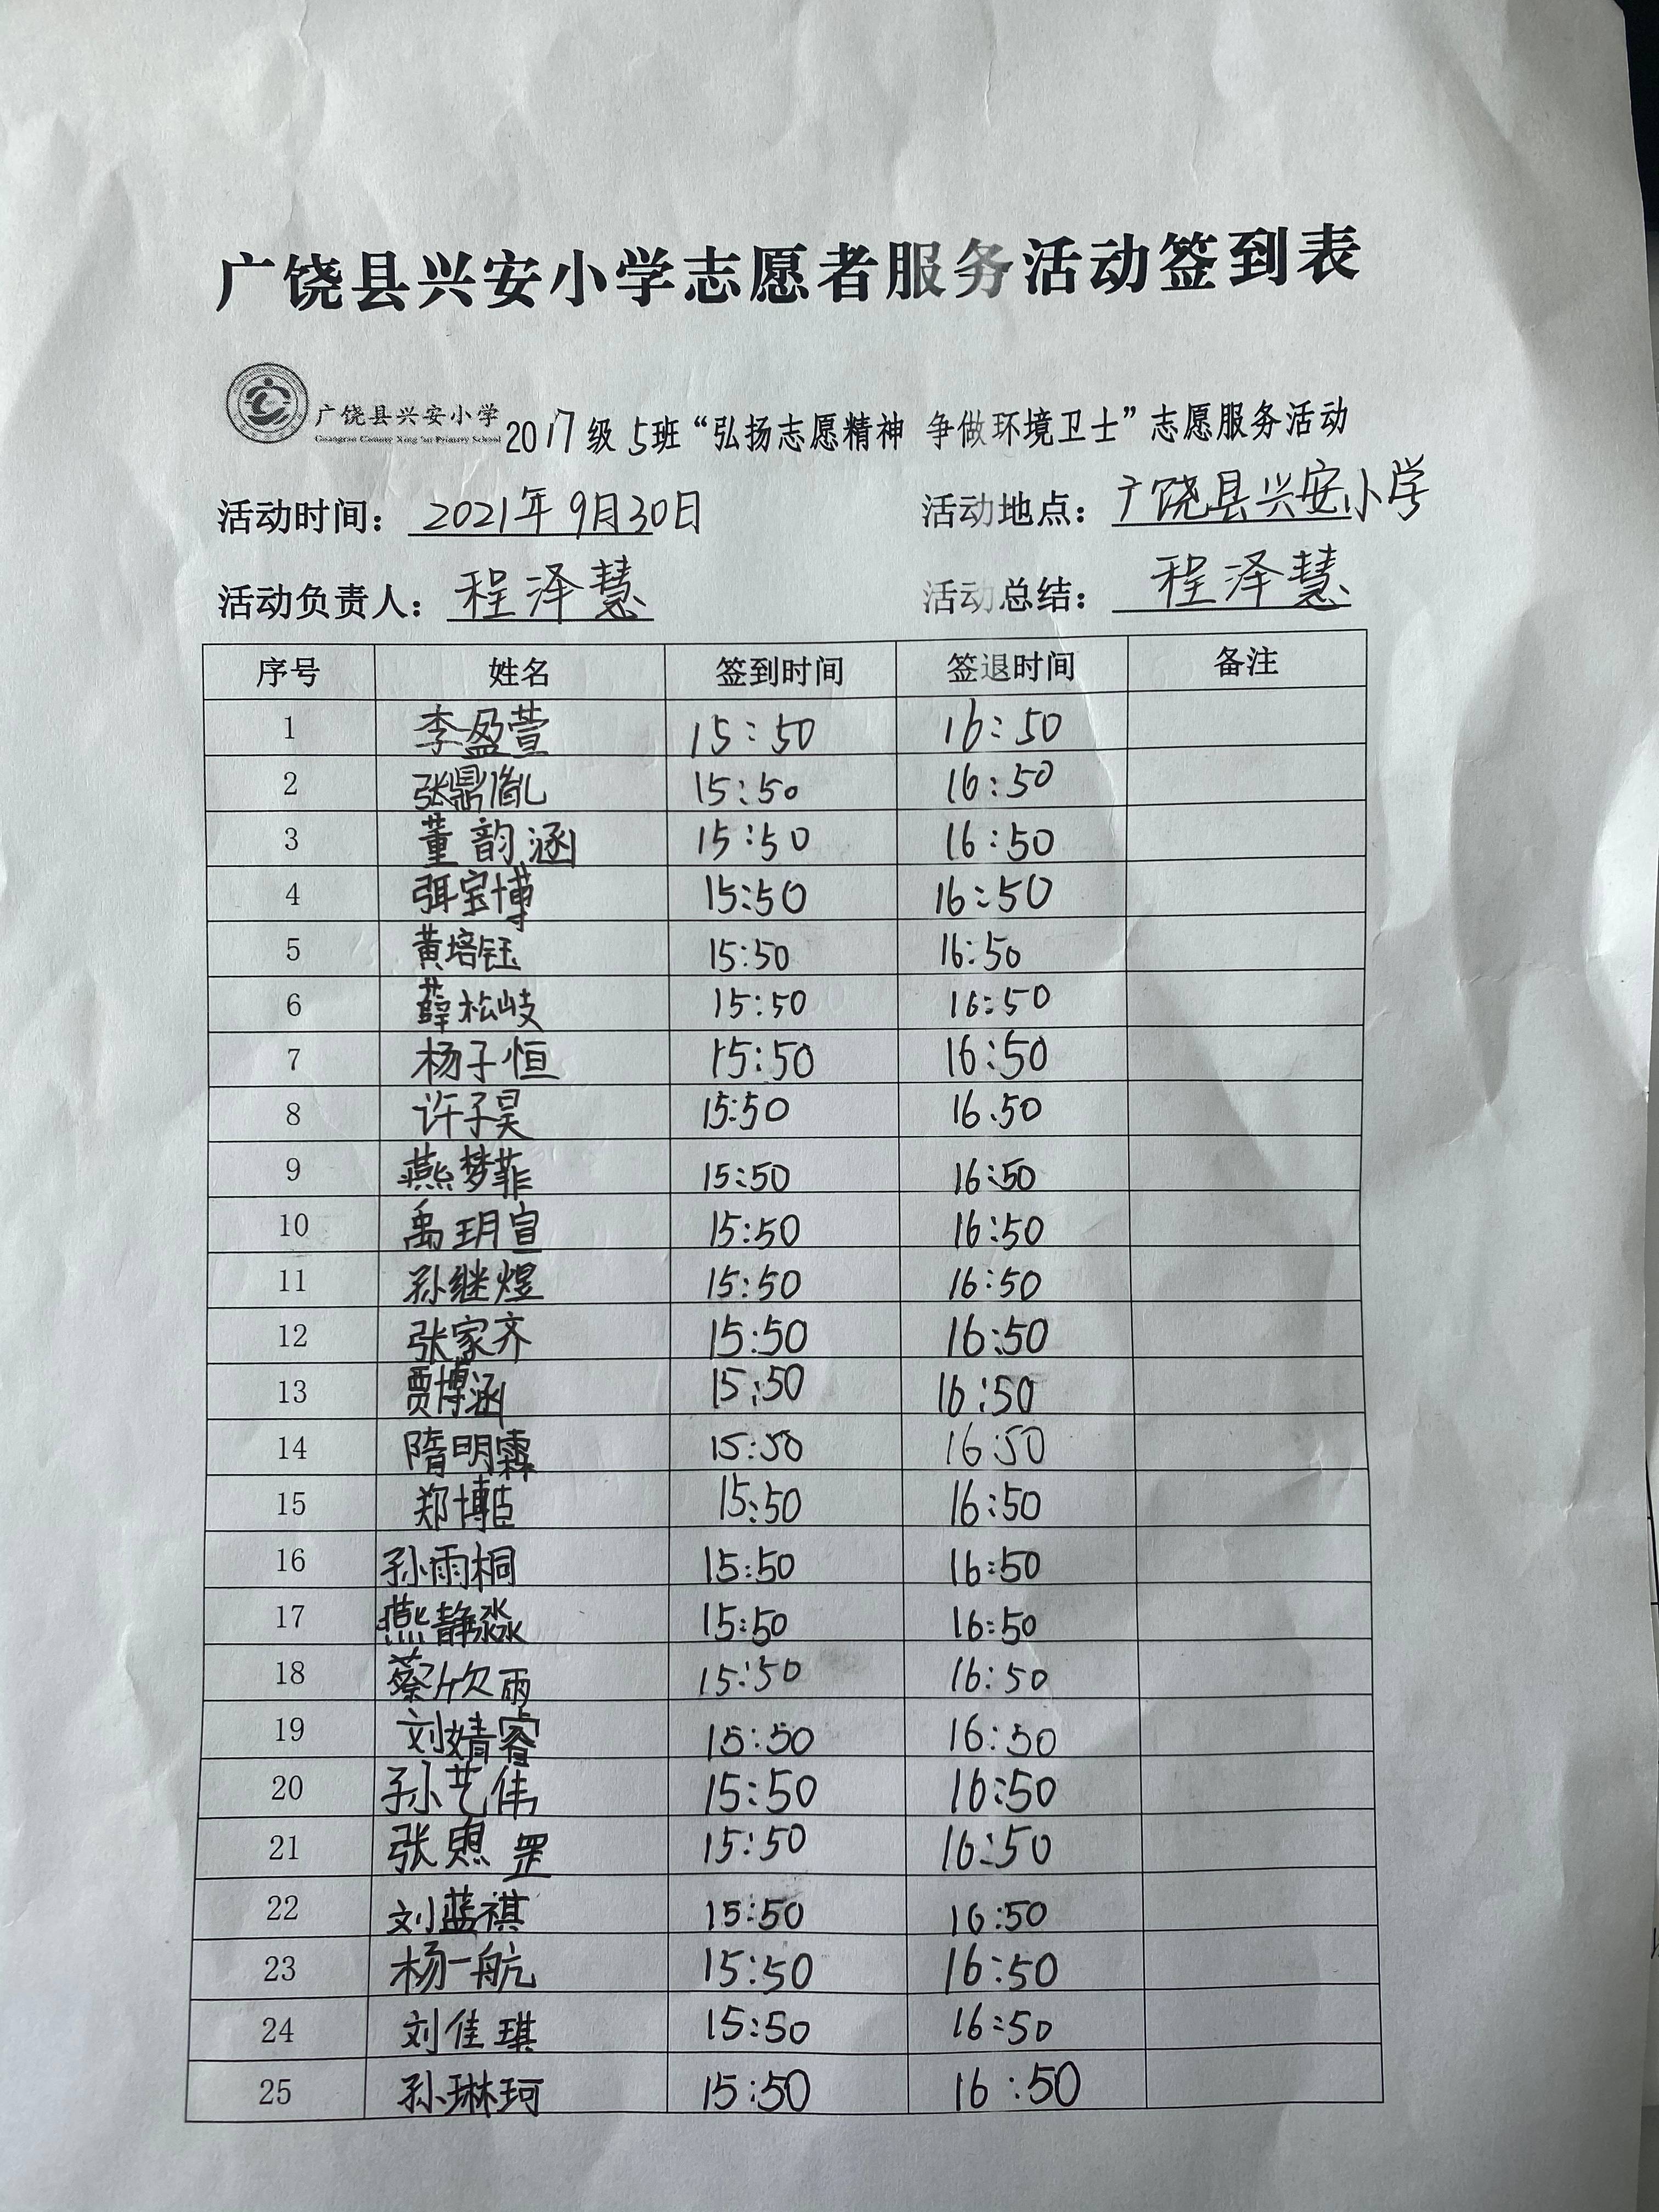 广饶县兴安小学志愿者服务活动签到表
广饶县兴安小学
Guangrao County Xing'an Primary School
2017级5班“弘扬志愿精神 争做环境卫士”志愿服务活动
活动时间：2021年9月30日 活动地点：广饶县兴安小学
活动负责人：程泽慧 活动总结：程泽慧
序号 姓名 签到时间 签退时间 备注
1 李盈萱 15:50 16:50
2 张鼎胤 15:50 16:50
3 董韵涵 15:50 16:50
4 宝博 15:50 16:50
5 黄培钰 15:50 16:50
6 薛松岐 15:50 16:50
7 杨子恒 15:50 16:50
8 许子昊 15:50 16.50
9 燕梦菲 15:50 16:50
10 禹玥宣 15:50 16:50
11 孙继煜 15:50 16:50
12 张家齐 15:50 16:50
13 贾博涵 15:50 16:50
14 隋明霖 15:50 16:50
15 郑博 15:50 16:50
16 孙雨桐 15:50 16:50
17 燕静淼 15:50 16:50
18 蔡欣雨 15:50 16:50
19 刘婧睿 15:50 16:50
20 孙艺伟 15:50 16:50
21 张 15:50 16:50
22 刘蓝祺 15:50 16:50
23 杨一航 15:50 16:50
24 刘佳琪 15:50 16:50
25 孙琳珂 15:50 16:50